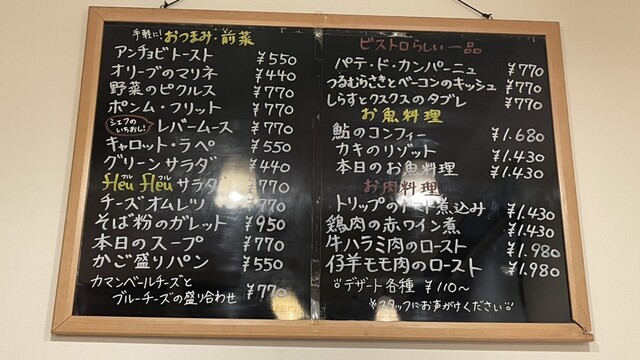 手軽に! おつまみ・前菜
アンチョビトースト ¥550
オリーブのマリネ ¥440
野菜のピクルス ¥770
ポンム・フリット ¥770
シェフのいちおし! レバームース ¥770
キャロット・ラペ ¥550
グリーンサラダ ¥440
fleu fleu サラダ ¥770
フル フル
チーズオムレツ ¥770
そば粉のガレット ¥950
本日のスープ ¥770
かご盛りパン ¥550
カマンベールチーズと
ブルーチーズの盛り合わせ ¥770
ビストロらしい一品
パテ・ド・カンパーニュ ¥770
つるむらさきとベーコンのキッシュ ¥770
しらすとクスクスのタブレ ¥770
お魚料理
鮎のコンフィー ¥1.680
カキのリゾット ¥1.430
本日のお魚料理 ¥1.430
お肉料理
トリップのトマト煮込み ¥1.430
鶏肉の赤ワイン煮 ¥1.430
牛ハラミ肉のロースト ¥1.980
仔羊モモ肉のロースト ¥1.980
デザート各種 ¥110～
※スタッフにお声がけください